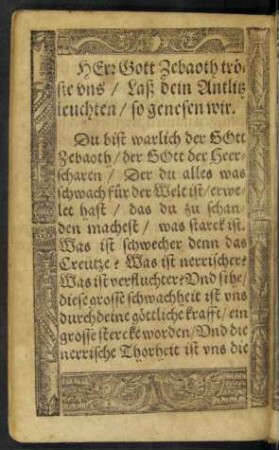 HErr Gott Zebaoth trö-
ste vns / Laß dein Antlitz
leuchten / so genesen wir.
Du bist warlich der GOtt
Zebaoth / der GOtt der Heer-
scharen / Der du alles was
schwach für der Welt ist / erwe-
let hast / das du zu schan-
den machest / was starck ist.
Was ist schwecher denn das
Creutze? Was ist nerrischer?
Was ist verfluchter? Vnd sihe /
diese grosse schwachheit ist vns
durch deine göttliche krafft / ein
grosse stercke worden / Vnd die
nerrische Thorheit ist vns die